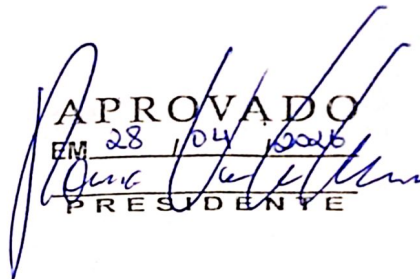 APROVADO
EM 28 / 04 / 2026
PRESIDENTE